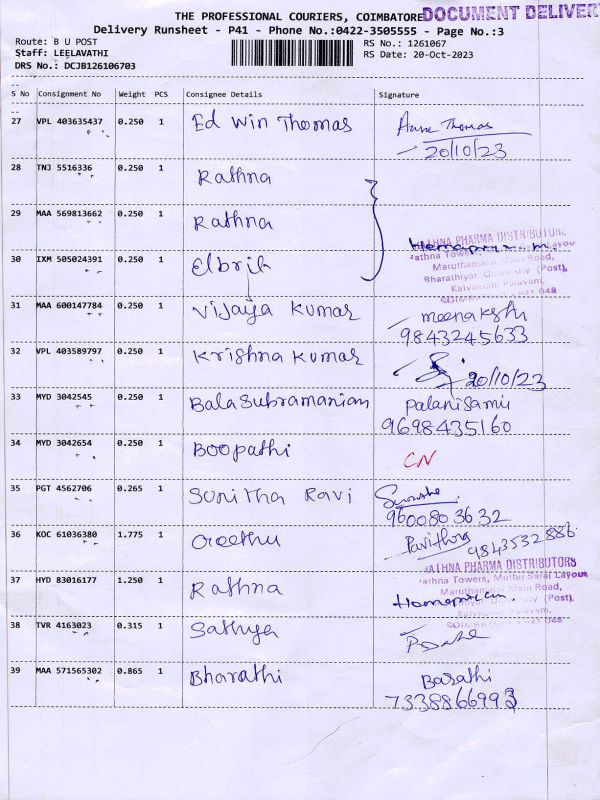 THE PROFESSIONAL COURIERS, COIMBATORE DOCUMENT DELIVERY
Delivery Runsheet - P41 - Phone No.:0422-3505555 - Page No.:3
Route: B U POST RS No.: 1261067
Staff: LEELAVATHI RS Date: 20-Oct-2023
DRS No.: DCJB126106703
S No Consignment No Weight PCS Consignee Details Signature
27 VPL 403635437 0.250 1 Ed Win Thomas Thomas
20/10/23
28 TNJ 5516336 0.250 1 Rathna
29 MAA 569813662 0.250 1 Rathna
RATHNA PHARMA DISTRIBUTORS
Rathna Towers, Layout
Maruthamalai Main Road,
30 IXM 505024391 0.250 1 Elbrik Bharathiyar University (Post),
Kalveeram Palayam,
31 MAA 600147784 0.250 1 Vijaya Kumar meenakshi
9843245633
32 VPL 403589797 0.250 1 Krishna Kumar 20/10/23
33 MYD 3042545 0.250 1 Bala Subramaniam Palanisamy
9698435160
34 MYD 3042654 0.250 1 Boopathi CN
35 PGT 4562706 0.265 1 Sunitha Ravi
9600803632
36 KOC 61036380 1.775 1 Geethu Pavithra 9843532886
RATHNA PHARMA DISTRIBUTORS
Rathna Towers, Muthu Sarai Layout
37 HYD 83016177 1.250 1 Rathna Maruthamalai Main Road,
(Post),
Palayam,
38 TVR 4163023 0.315 1 Sathya
39 MAA 571565302 0.865 1 Bharathi Barathi
7338866993